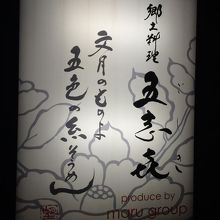 郷土料理
五志喜
文月のものよ
五色の糸そうめん
produce by
maru group